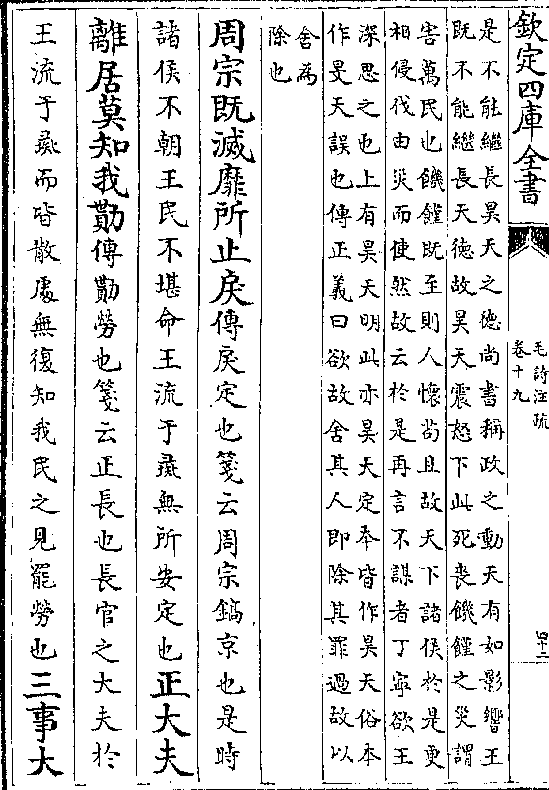 欽定四庫全書
毛詩注疏
卷十九
四十二
是不能繼長昊天之德尚書稱政之動天有如影響王
既不能繼長天德故昊天震怒下此死喪饑饉之災謂
害萬民也饑饉既至則人懷茍且故天下諸侯於是更
相侵伐由災而使然故云於是再言不謀者丁寧欲王
深思之也上有昊天明此亦昊天定本皆作昊天俗本
作旻天誤也傳正義曰欲故舍其人即除其罪過故以
舍為
除也
周宗既滅靡所止戾傳戾定也箋云周宗鎬京也是時
諸侯不朝王民不堪命王流于彘無所安定也正大夫
離居莫知我勩傳勩勞也箋云正長也長官之大夫於
王流于彘而皆散處無復知我民之見罷勞也三事大